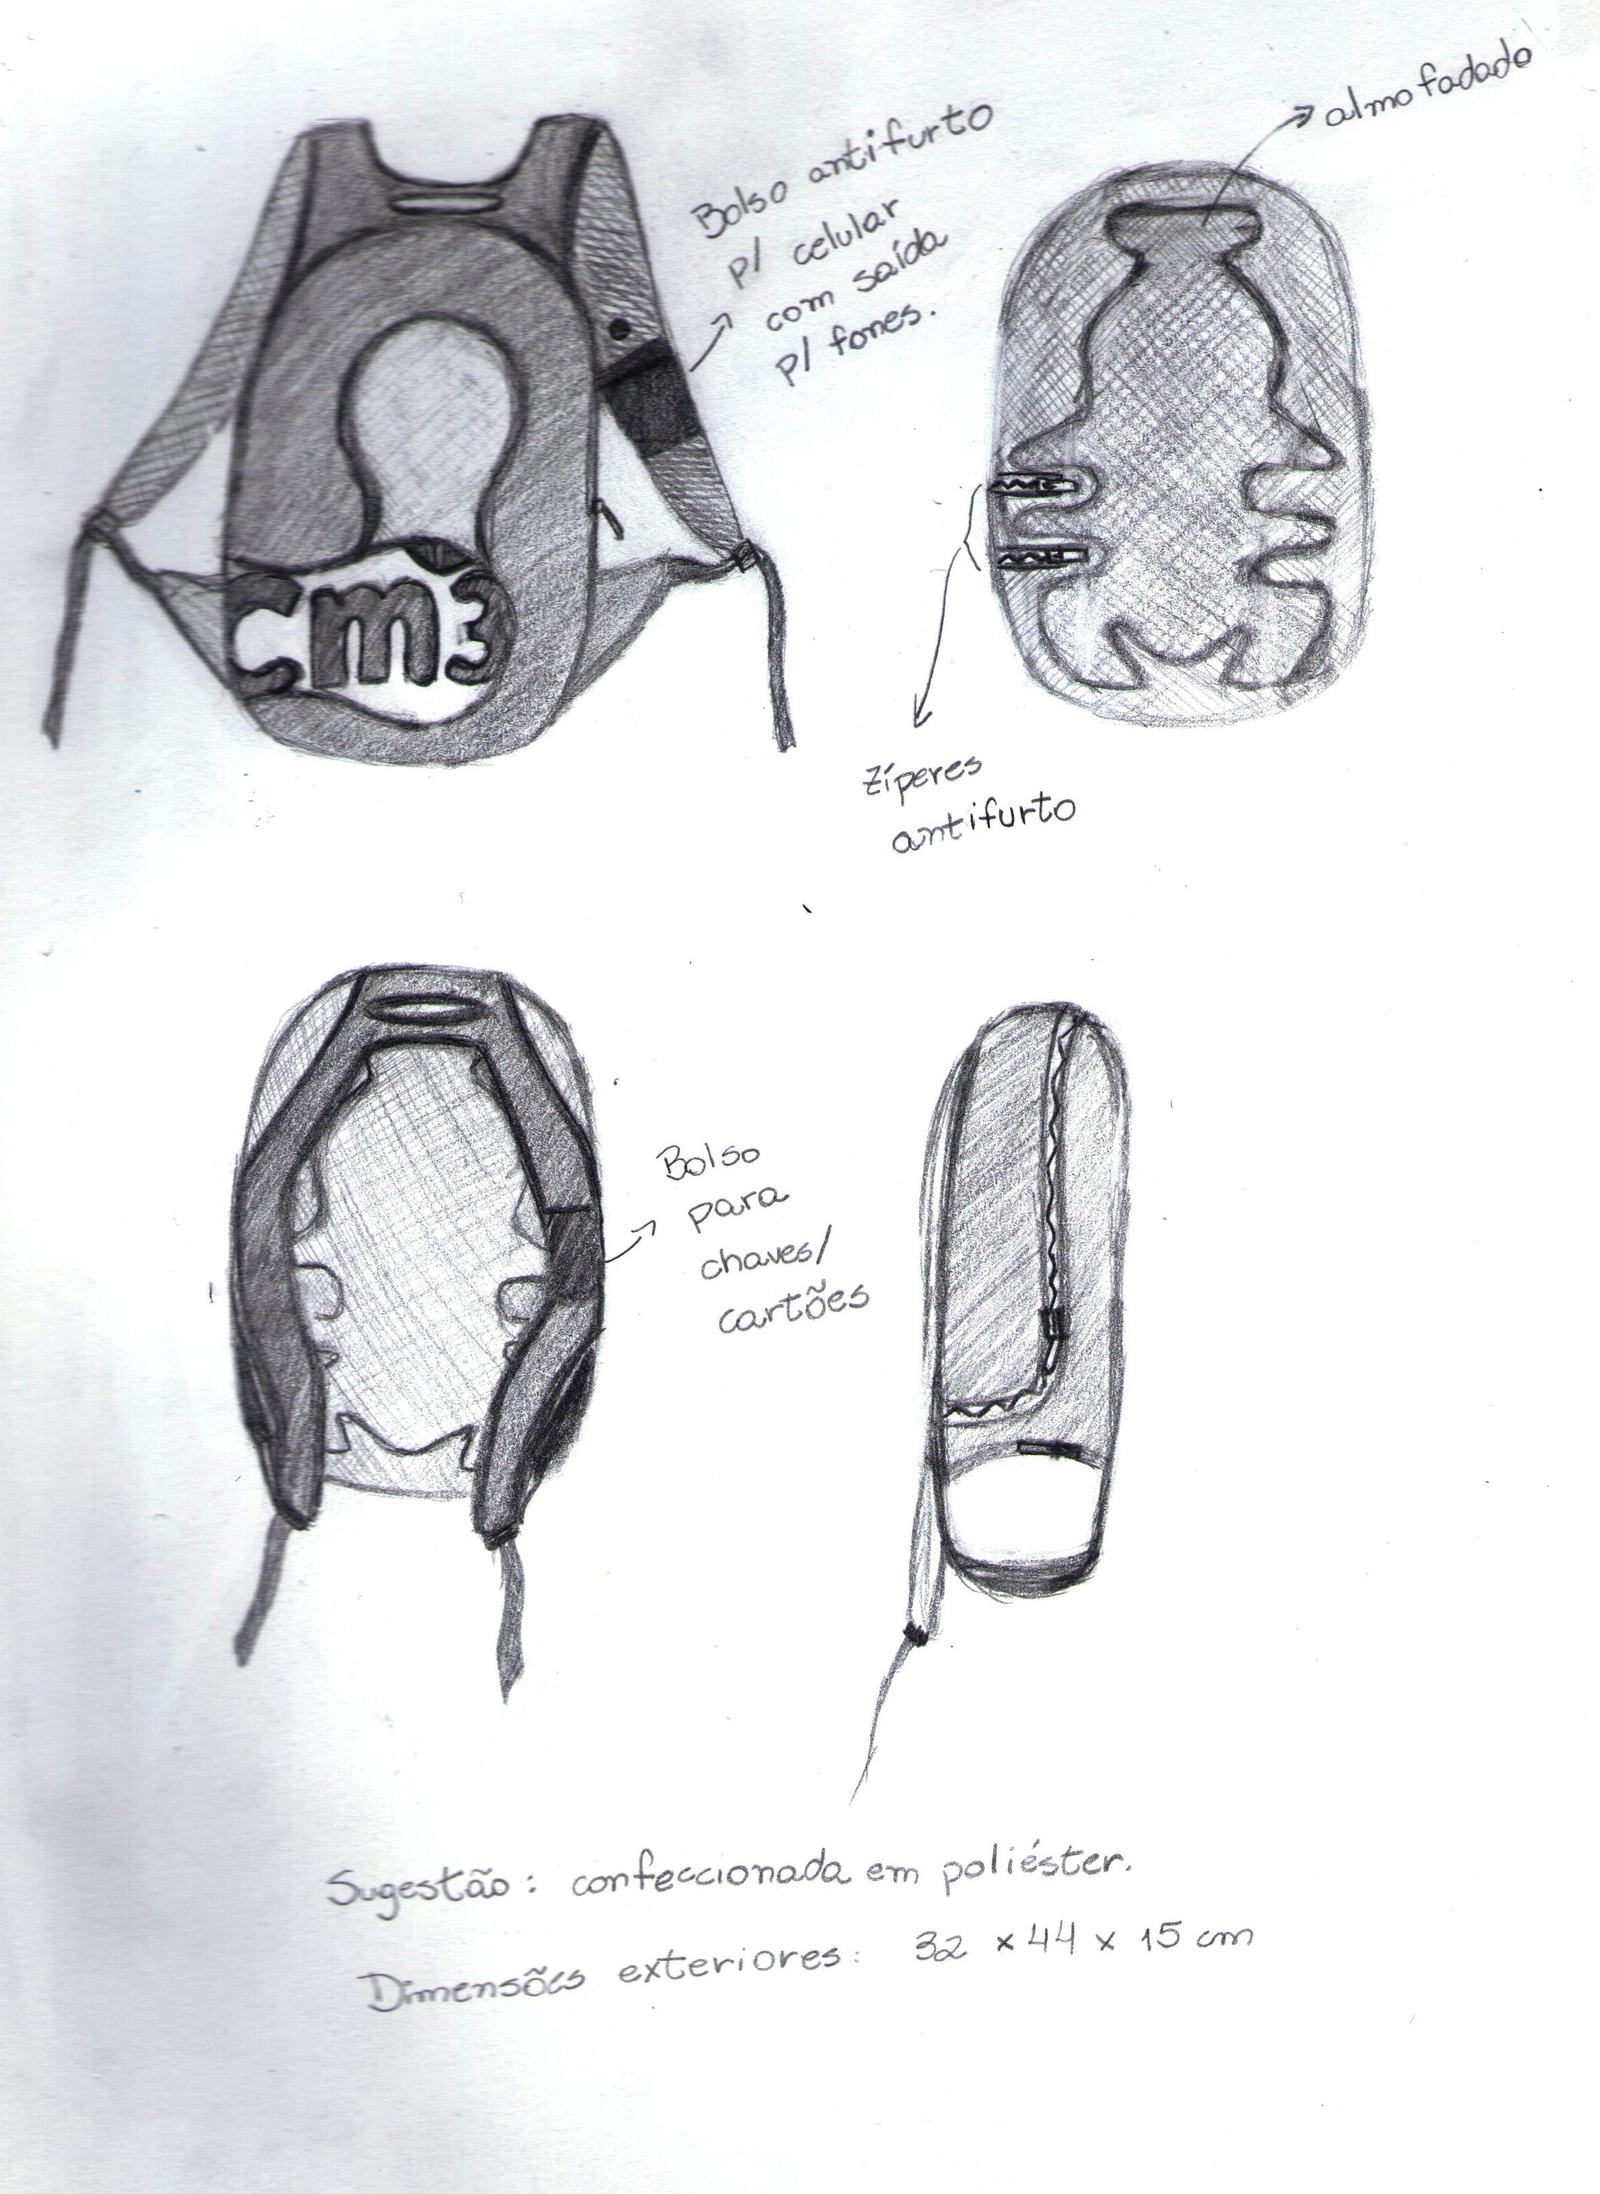 almofadado
Bolso antifurto
p/ celular
com saída
p/ fones.
cm3
Zíperes
antifurto
Bolso
para
chaves/
cartões
Sugestão: confeccionada em poliéster.
Dimensões exteriores: 32 x 44 x 15 cm